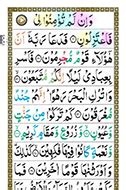 وَإِنْ لَّمْ تُؤْمِنُوْا لِيْ
فَاعْتَزِلُوْنِ ۝ فَدَعَا رَبَّهٗٓ اَنَّ
هٰٓؤُلَآءِ قَوْمٌ مُّجْرِمُوْنَ ۝ فَاَسْرِ
بِعِبَادِيْ لَيْلًا اِنَّكُمْ مُّتَّبَعُوْنَ ۝
وَاتْرُكِ الْبَحْرَ رَهْوًا ۭ اِنَّهُمْ جُنْدٌ
مُّغْرَقُوْنَ ۝ كَمْ تَرَكُوْا مِنْ جَنّٰتٍ
وَّعُيُوْنٍ ۝ وَّزُرُوْعٍ وَّمَقَامٍ كَرِيْمٍ ۝
وَّنَعْمَةٍ كَانُوْا فِيْهَا فٰكِهِيْنَ ۝ كَذٰلِكَ
وَاَوْرَثْنٰهَا قَوْمًا اٰخَرِيْنَ ۝ فَمَا